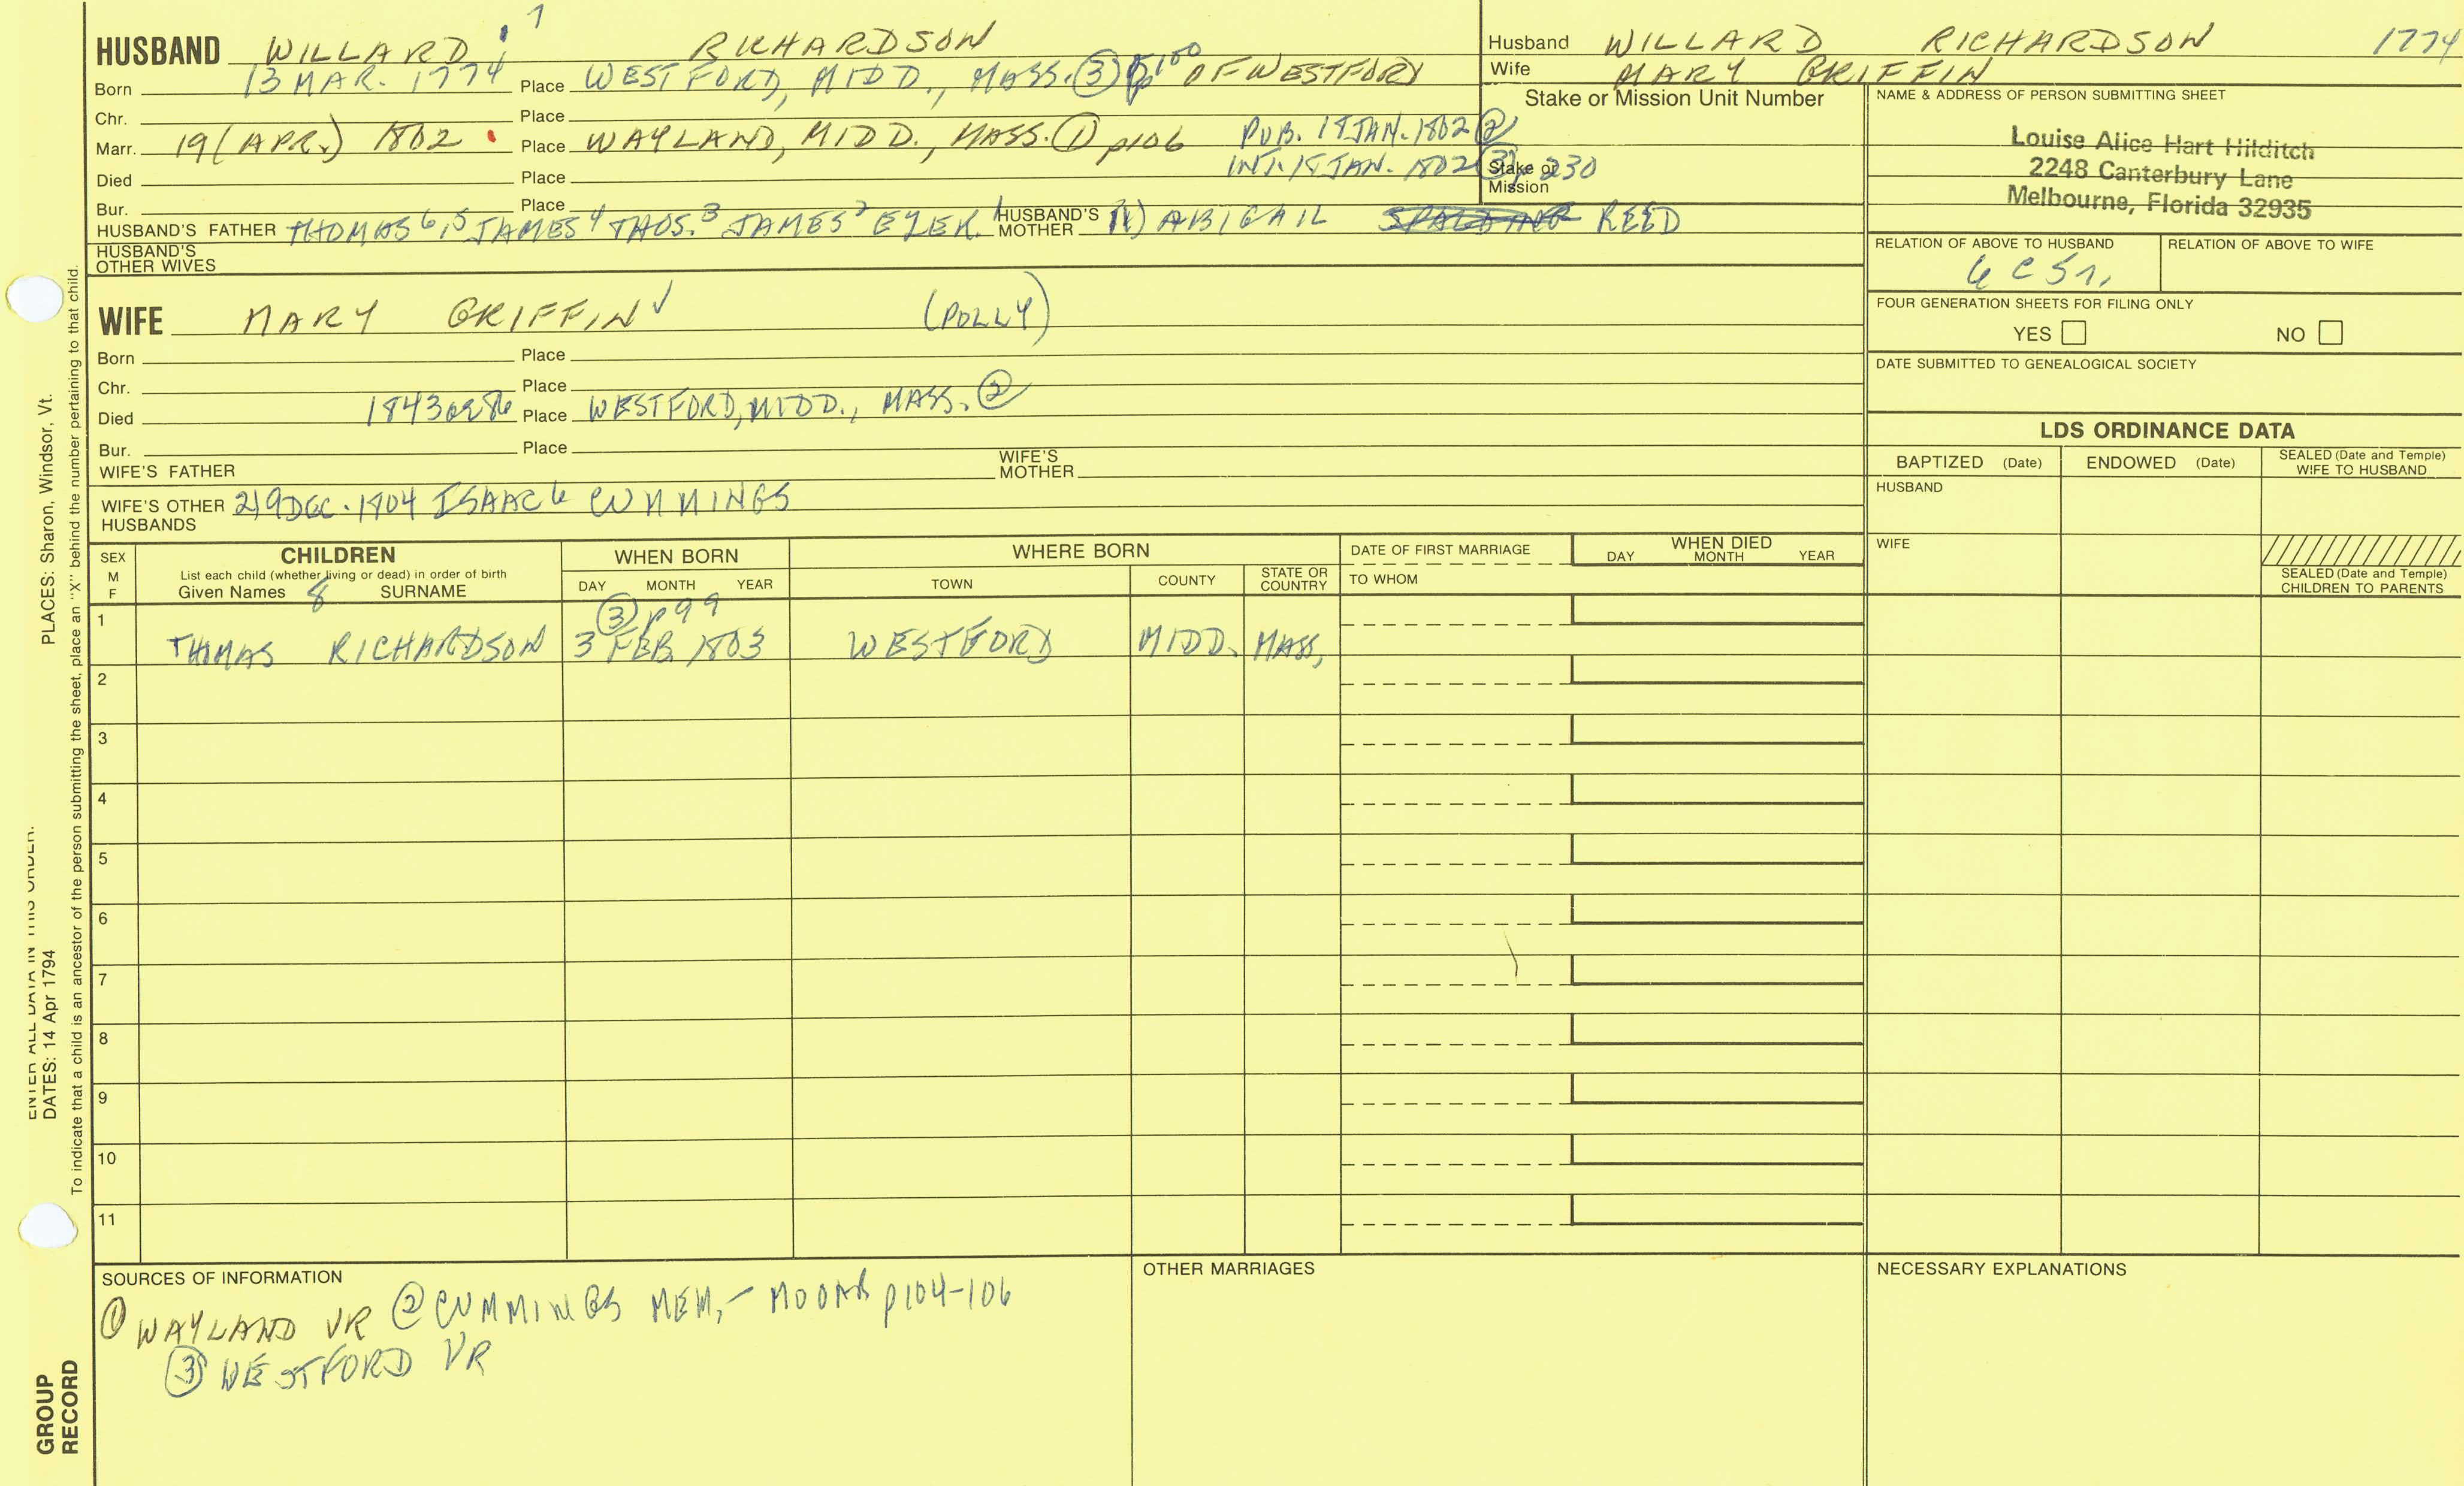 7
HUSBAND WILLARD RICHARDSON
Born 13 MAR. 1774 Place WESTFORD, MIDD., MASS. ③ p100 OF WESTFORD
Chr. Place
Marr. 19 (APR.) 1802 Place WAYLAND, MIDD., MASS. ① p106 PUB. 15 JAN. 1802 ②
INT. 15 JAN. 1802 ③, 230
Died Place
Bur. Place
HUSBAND'S FATHER THOMAS 6, 5 JAMES 4 THOS. 3 JAMES 2 EZEK. 1 HUSBAND'S MOTHER 1) ABIGAIL SPALDING REED
HUSBAND'S OTHER WIVES
Husband WILLARD RICHARDSON 1774
Wife MARY GRIFFIN
Stake or Mission Unit Number
Stake or Mission
NAME & ADDRESS OF PERSON SUBMITTING SHEET
Louise Alice Hart Hilditch
2248 Canterbury Lane
Melbourne, Florida 32935
RELATION OF ABOVE TO HUSBAND RELATION OF ABOVE TO WIFE
6C5r,
FOUR GENERATION SHEETS FOR FILING ONLY
YES NO
DATE SUBMITTED TO GENEALOGICAL SOCIETY
WIFE MARY GRIFFIN ✓ (POLLY)
Born Place
Chr. Place
Died 1843 Place WESTFORD, MIDD., MASS. ②
Bur. Place
WIFE'S FATHER WIFE'S MOTHER
WIFE'S OTHER HUSBANDS 2) 9 DEC. 1804 ISAAC 6 CUMMINGS
LDS ORDINANCE DATA
BAPTIZED (Date) ENDOWED (Date) SEALED (Date and Temple) WIFE TO HUSBAND
HUSBAND
WIFE
SEALED (Date and Temple) CHILDREN TO PARENTS
SEX M F
CHILDREN
List each child (whether living or dead) in order of birth
Given Names 8 SURNAME
WHEN BORN
DAY MONTH YEAR
WHERE BORN
TOWN COUNTY STATE OR COUNTRY
DATE OF FIRST MARRIAGE
TO WHOM
WHEN DIED
DAY MONTH YEAR
③ p99
1 THOMAS RICHARDSON 3 FEB 1803 WESTFORD MIDD. MASS,
2
3
4
5
6
7
8
9
10
11
SOURCES OF INFORMATION
① WAYLAND VR ② CUMMINGS MEM, - MOOAR p104-106
③ WESTFORD VR
OTHER MARRIAGES
NECESSARY EXPLANATIONS
ENTER ALL DATA IN THIS ORDER:
DATES: 14 Apr 1794 PLACES: Sharon, Windsor, Vt.
To indicate that a child is an ancestor of the person submitting the sheet, place an "X" behind the number pertaining to that child.
GROUP
RECORD